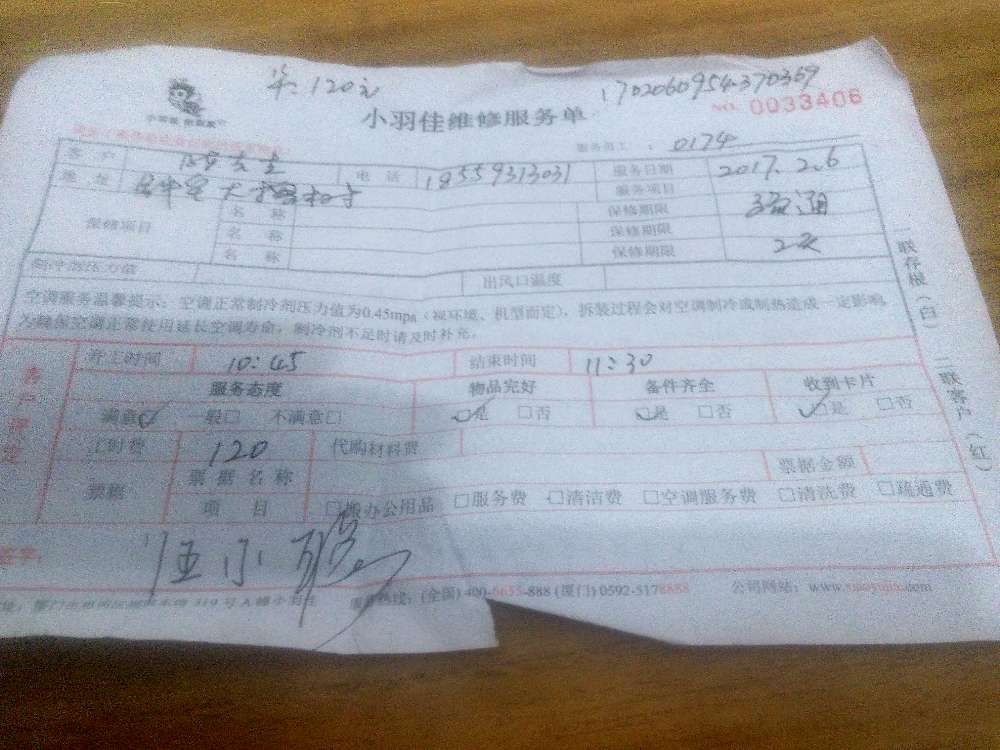 120元 17020609543703​69
小羽佳维修服务单 NO. 0033406
服务员工: 0174
客户 先生 电话 18559313031 服务日期 2017.2.6
地址 服务项目 疏通
保修项目 名称 保修期限 2天
名称 保修期限
名称 保修期限
制冷剂压力值 出风口温度
空调服务温馨提示:空调正常制冷剂压力值为0.45mpa(视环境、机型而定),拆装过程会对空调制冷或制热造成一定影响,
为确保空调正常使用延长空调寿命,制冷剂不足时请及时补充。
开工时间 10:45 结束时间 11:30
客户评定
服务态度 物品完好 备件齐全 收到卡片
满意☑ 一般□ 不满意□ ☑是 □否 ☑是 □否 ☑是 □否
工时费 120 代购材料费
票据 票据名称 票据金额
项目 □办公用品 □服务费 □清洁费 □空调服务费 □清洗费 □疏通费
签字: 汪小聪
319号A幢 服务热线:(全国)400-6655-888 (厦门)0592-5178888 公司网站:www.xiaoyujia.com
一联存根(白) 二联客户(红)